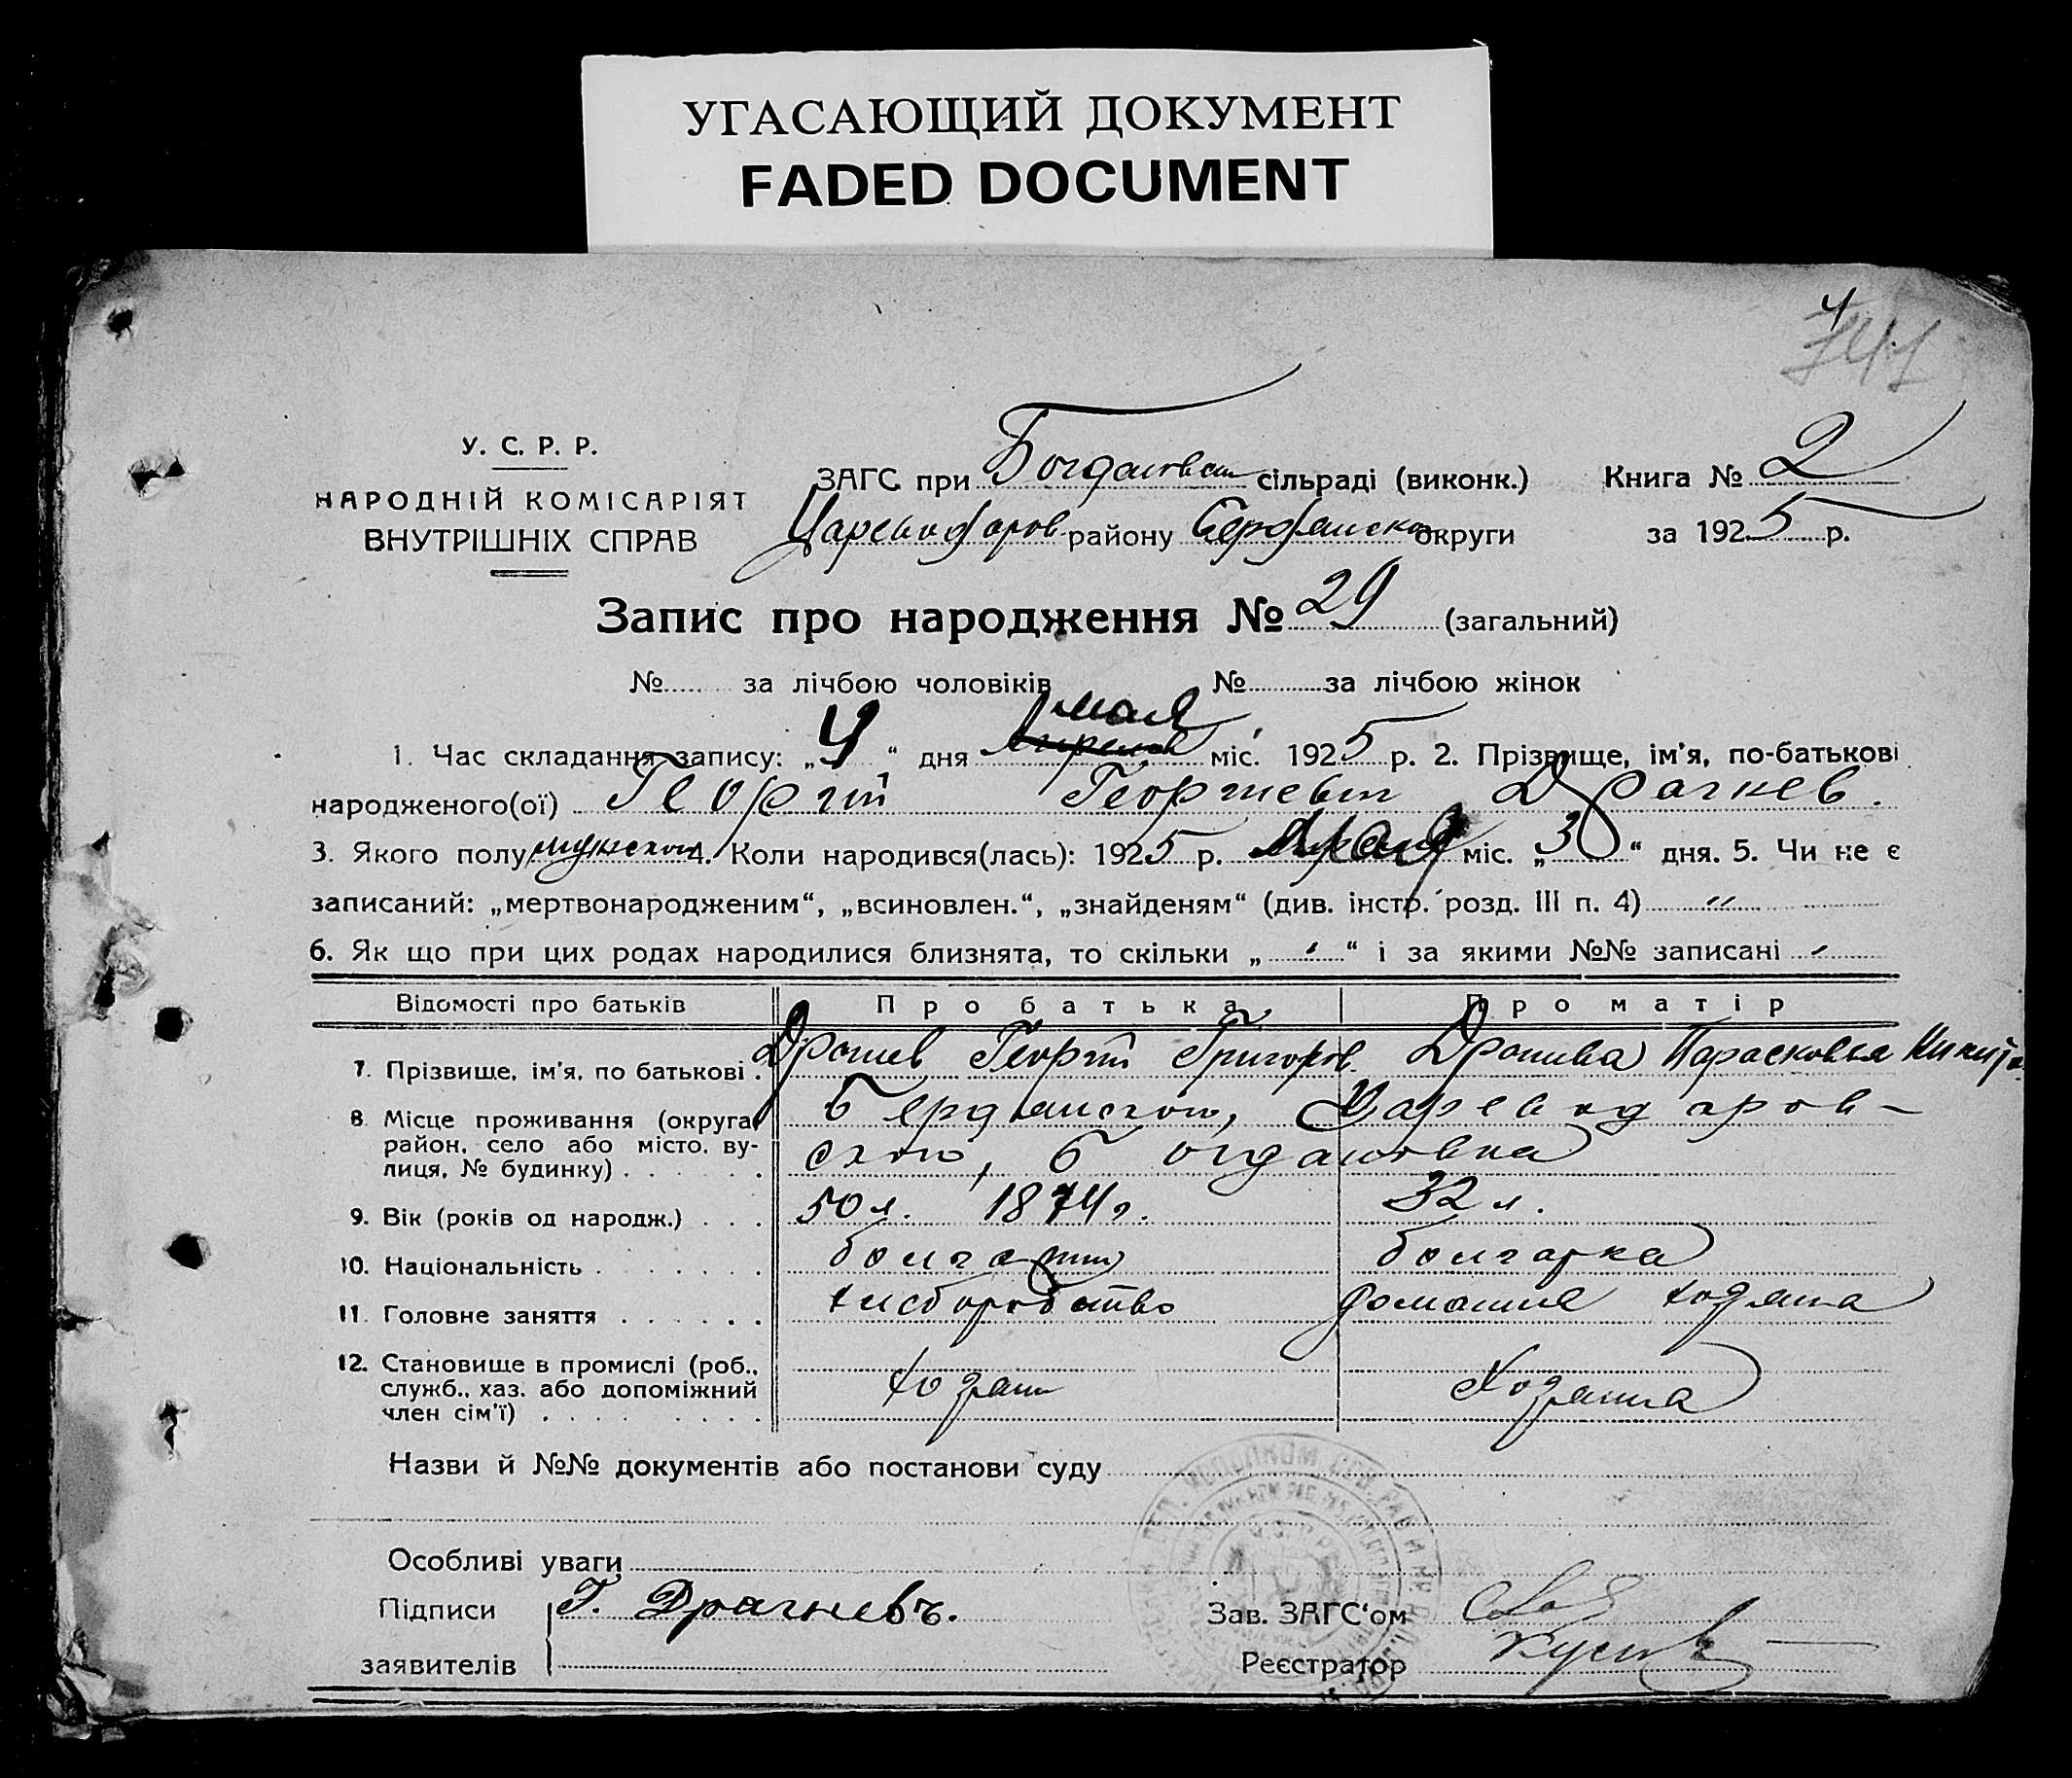 УГАСАЮЩИЙ ДОКУМЕНТ
FADED DOCUMENT
4
741
У. С. Р. Р.
НАРОДНІЙ КОМІСАРІЯТ
ВНУТРІШНІХ СПРАВ
ЗАГС при Богдановск сільраді (виконк.) Книга № 2
Цареводаров району Бердянско округи за 1925 р.
Запис про народження № 29 (загальний)
№ за лічбою чоловіків № за лічбою жінок
мая
1. Час складання запису: „4“ дня міс. 1925 р. 2. Прізвище, ім'я, по-батькові
народженого(ої) Георгій Георгиевич Драгнев.
3. Якого полу мужской 4. Коли народився(лась): 1925 р. міс. „30“ дня. 5. Чи не є
записаний: „мертвонародженим“, „всиновлен.“, „знайденям“ (див. інстр. розд. III п. 4) "
6. Як що при цих родах народилися близнята, то скільки „ “ і за якими №№ записані
Відомості про батьків Про батька Про матір
7. Прізвище, ім'я, по батькові. Драгнев Георгій Григоров. Драгнева Парасковья Никит.
8. Місце проживання (округа, район, село або місто, вулиця, № будинку) Бердянской, Царевод аров-
ской, Богдановка
9. Вік (років од народж.) 50 л. 1874 г. 32 л.
10. Національність болгарин болгарка
11. Головне заняття хлеборобство домашня хозяйка
12. Становище в промислі (роб., служб., хаз. або допоміжний член сім'ї) хозяин Хозяйка
Назви й №№ документів або постанови суду
Особливі уваги
Підписи Г. Драгневъ. Зав. ЗАГС'ом
заявителів Реєстратор